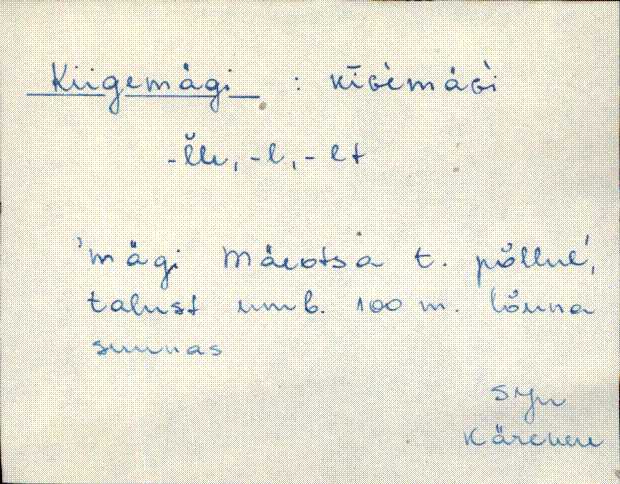 Kiigemägi : kīGèmäGì
-l̆le, -l, -lt
'mägi Mäeotsa t. põllul',
talust umb. 100 m. lõuna
suunas
Syn
Kärevere